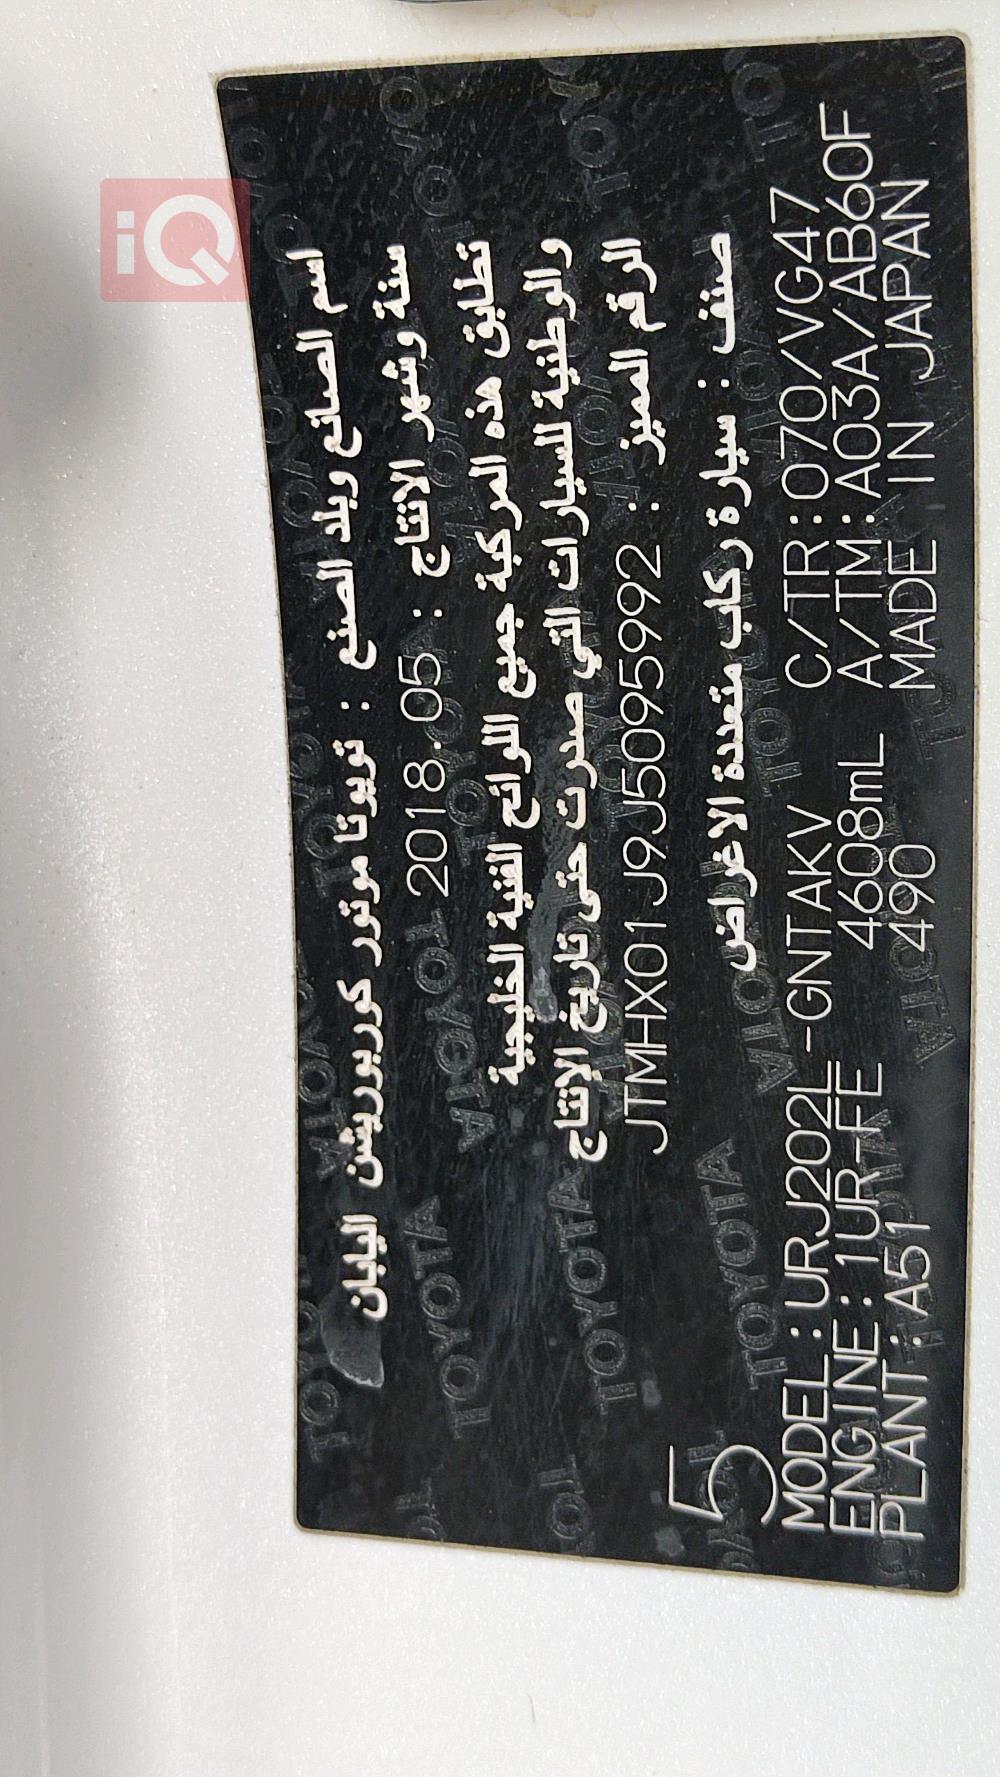 اسم الصانع وبلد الصنع : تويوتا موتور كوربوريشن اليابان
سنة وشهر الانتاج : 2018.05
تطابق هذه المركبة جميع اللوائح الفنية الخليجية
والوطنية للسيارات التي صدرت حتى تاريخ الإنتاج
الرقم المميز : JTMHX01J9J5095992
صنف : سيارة ركاب متعددة الاغراض
5
MODEL:URJ202L-GNTAKV C/TR:070/VG47
ENGINE:1UR-FE 4608mL A/TM:A03A/AB60F
PLANT:A51 490 MADE IN JAPAN
iQ
TOYOTA